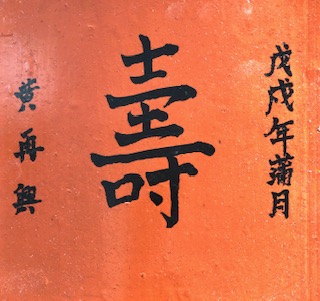 戊戌年蒲月
壽
黄再興